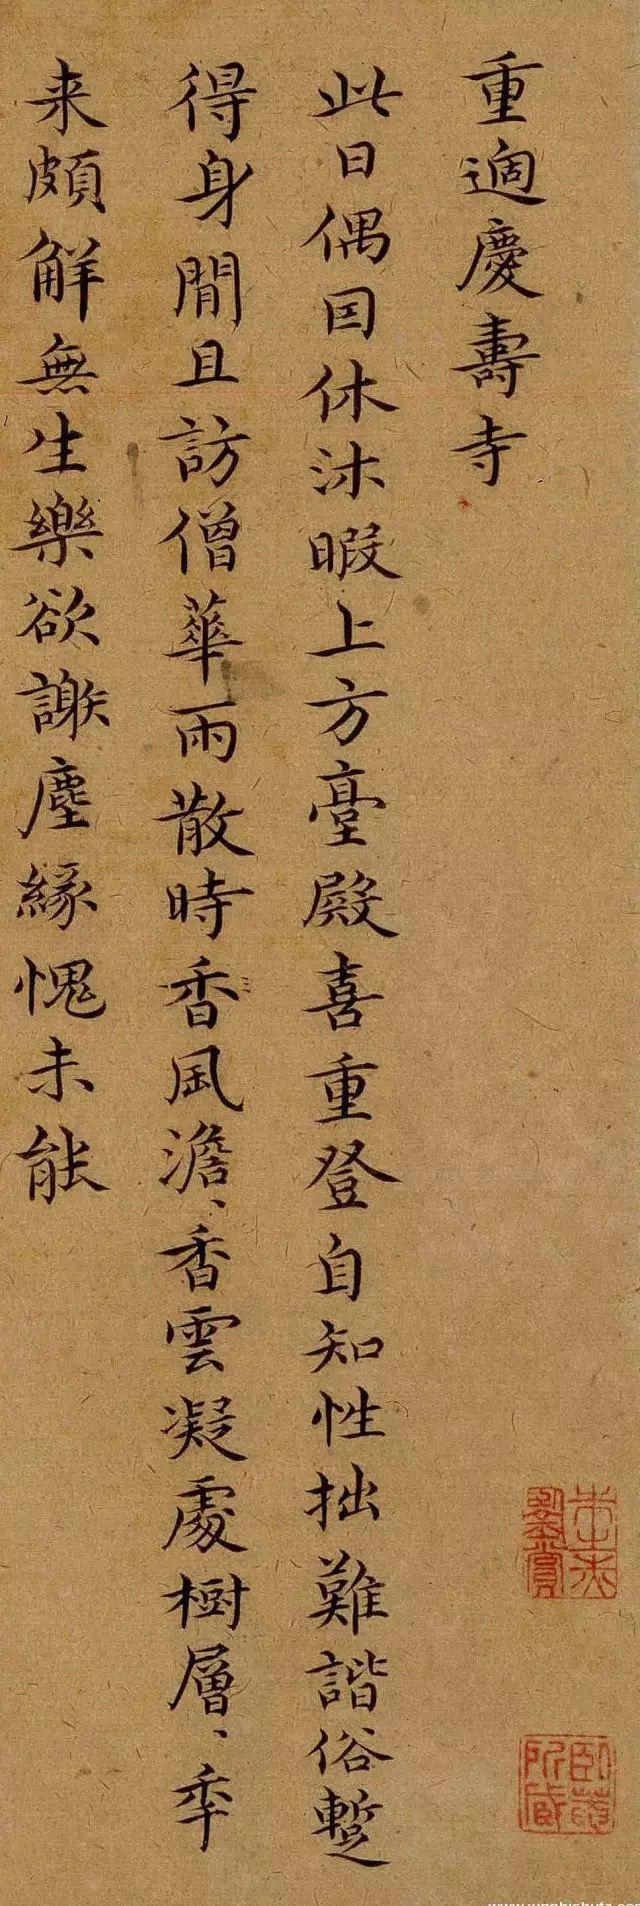 重過慶壽寺
此日偶囙休沐暇上方臺殿喜重登自知性拙難諧俗蹔
得身閒且訪僧華雨散時香風澹、香雲凝處樹層、秊
来頗解無生樂欲謝塵緣愧未能
朱之赤鑒賞
卧菴所藏